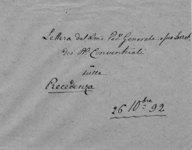 Lettera del Rmo Pre Generale
dei PP. Conventuali
sulla
Precedenza
26 10bre 92